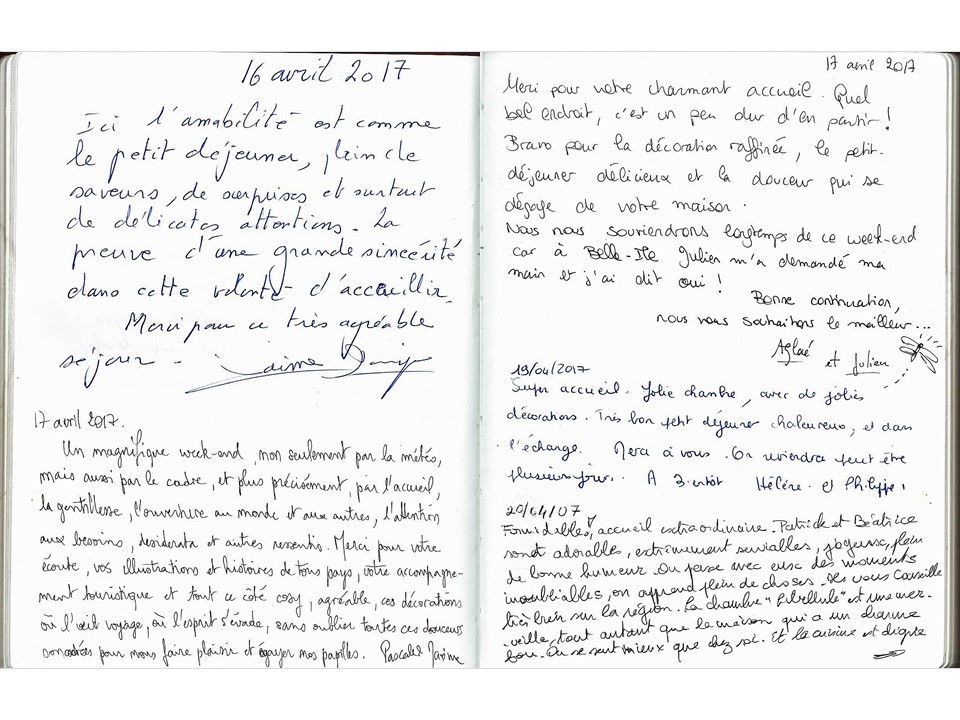 16 avril 2017
Ici l'amabilité est comme
le petit déjeuner, plein de
saveurs, de surprises et surtout
de délicates attentions. La
preuve d'une grande sincérité
dans cette volonté d'accueillir.
Merci pour ce très agréable
séjour.
17 avril 2017.
Un magnifique week-end, non seulement par la météo,
mais aussi par le cadre, et plus précisément, par l'accueil,
la gentillesse, l'ouverture au monde et aux autres, l'attention
aux besoins, desiderata et autres ressentis. Merci pour votre
écoute, vos illustrations et histoires de tous pays, votre accompagne-
ment touristique et tout ce côté cosy, agréable, ces décorations
où l'œil voyage, où l'esprit s'évade, sans oublier toutes ces douceurs
pour nous faire plaisir et égayer nos papilles. Pascale & Jérôme
17 avril 2017
Merci pour votre charmant accueil. Quel
bel endroit, c'est un peu dur d'en partir !
Bravo pour la décoration raffinée, le petit-
déjeuner délicieux et la douceur qui se
dégage de votre maison.
Nous nous souviendrons longtemps de ce week-end
car à Belle-Ile Julien m'a demandé ma
main et j'ai dit oui !
Bonne continuation,
nous vous souhaitons le meilleur...
Aglaé et Julien
19/04/2017
Super accueil. Jolie chambre, avec de jolies
décorations. Très bon petit déjeuner chaleureux, et dans
l'échange. Merci à vous. On reviendra peut être
plusieurs jours. A Bientôt Hélène. et Philippe.
20/04/07
Formidables, accueil extraordinaire. Patrick et Béatrice
sont adorables, extrêmement serviables, joyeuse, plein
de bonne humeur. On passe avec eux des moments
inoubliables, on apprend plein de choses. Ils vous conseille
très bien sur la région. La chambre "Libellule" est une mer-
veille, tout autant que la maison qui a un charme
fou. On se sent mieux que chez soi. Et la cuisine est digne